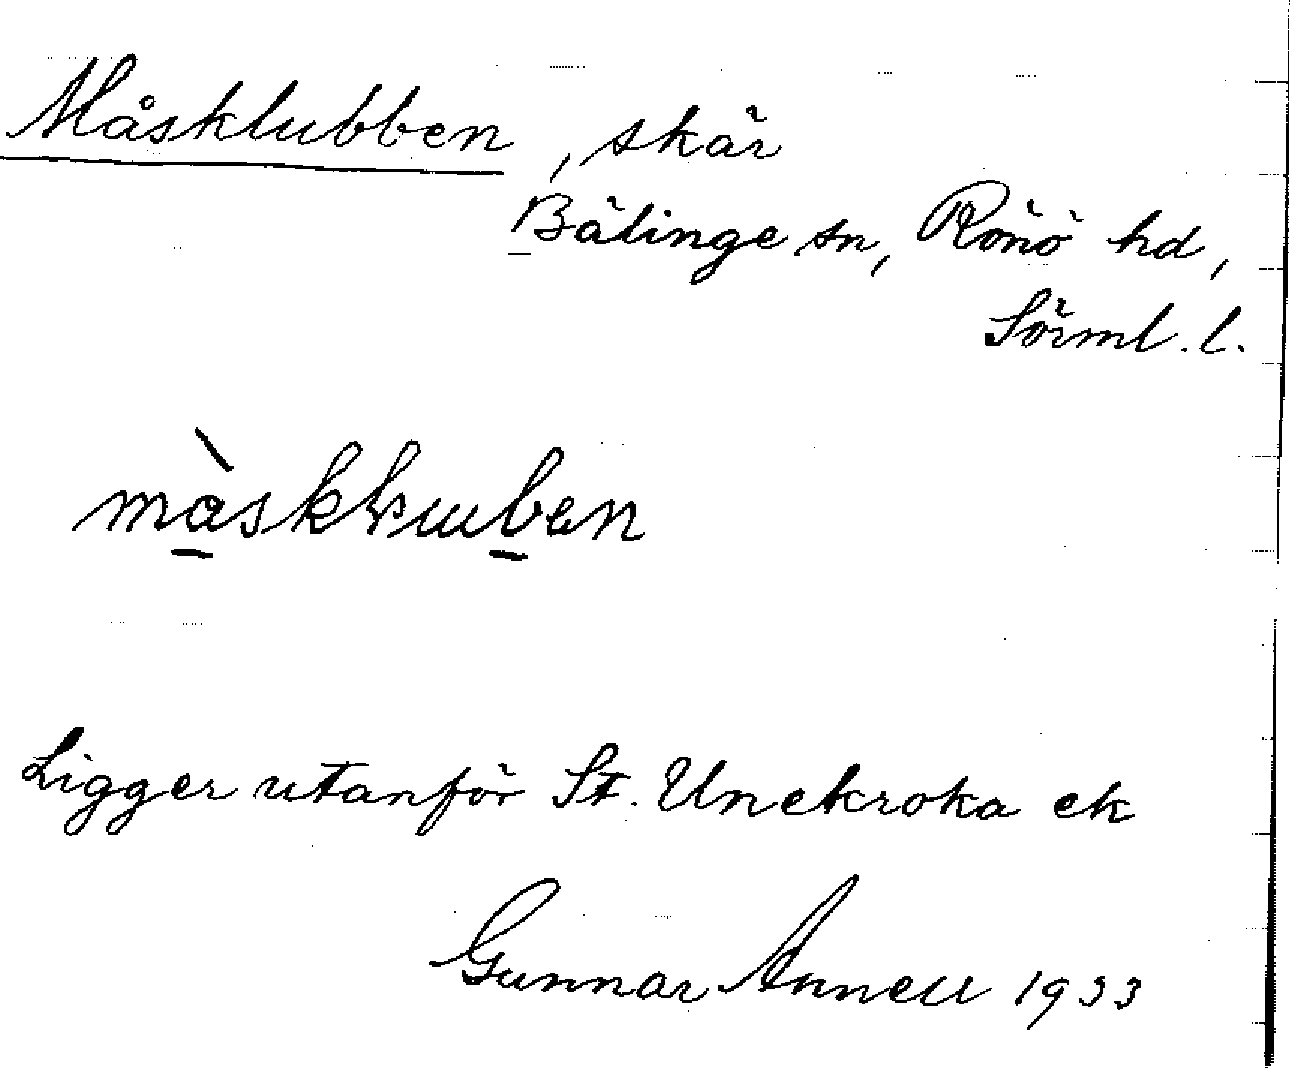 Måsklubben, skär
Bälinge sn, Rönö hd,
Sörml. l.
Ligger utanför St. Unekroka ek
Gunnar Annell 1933